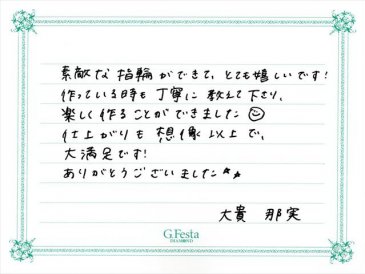 素敵な指輪ができて、とても嬉しいです!
作っている時も丁寧に教えて下さり、
楽しく作ることができました☺
仕上がりも想像以上で、
大満足です!
ありがとうございました★★
大貴 那実
G.Festa
DIAMOND